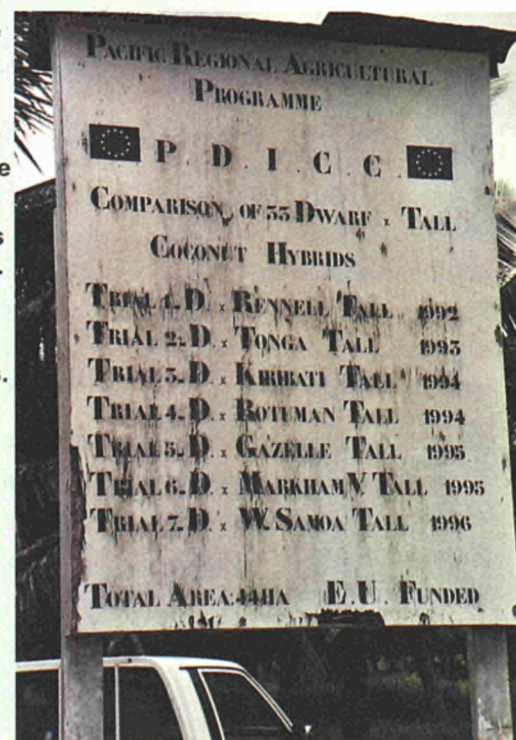 PACIFIC REGIONAL AGRICULTURAL
PROGRAMME
P.D.I.C.C.
COMPARISON OF 33 DWARF x TALL
COCONUT HYBRIDS
TRIAL 1. D. x RENNELL TALL 1992
TRIAL 2. D. x TONGA TALL 1993
TRIAL 3. D. x KIRIBATI TALL 1994
TRIAL 4. D. x ROTUMAN TALL 1994
TRIAL 5. D. x GAZELLE TALL 1995
TRIAL 6. D. x MARKHAM V. TALL 1995
TRIAL 7. D. x W. SAMOA TALL 1996
TOTAL AREA: 44HA E.U. FUNDED